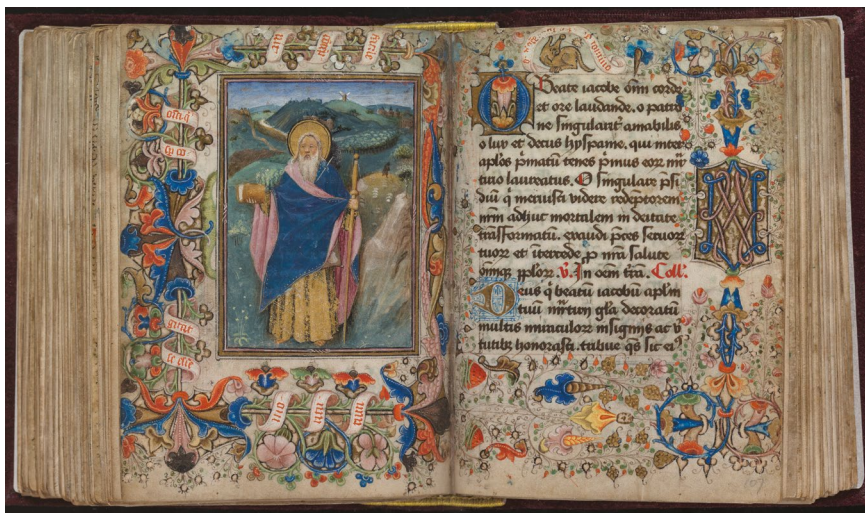 O Beate iacobe om̄i corde
et ore laudande. o patro
ne singularit̃ amabilis
o lux et decus hyspanie. qui inter
apl̃os p̃matũ tenes p̃mus eoꝝ mr̃
tirio laureatus. O singulare p̃si
diũ q̃ meruisti videre redẽptorem
nr̃m adhuc mortalem in deitate
trãsformatũ. exaudi p̃ces seruoꝝ
tuoꝝ et ĩtercede ꝓ nr̃a salute
ꝓploꝝ. v̾. In oẽm tr̃a. Coll̃.
Deus q̃ beatũ iacobũ apl̃m
tuũ gl̃a decoratũ
multis miraculoꝝ insignijs ac v̾
tutibꝫ honorasti. tribue q̃s sic eiꝰ
107